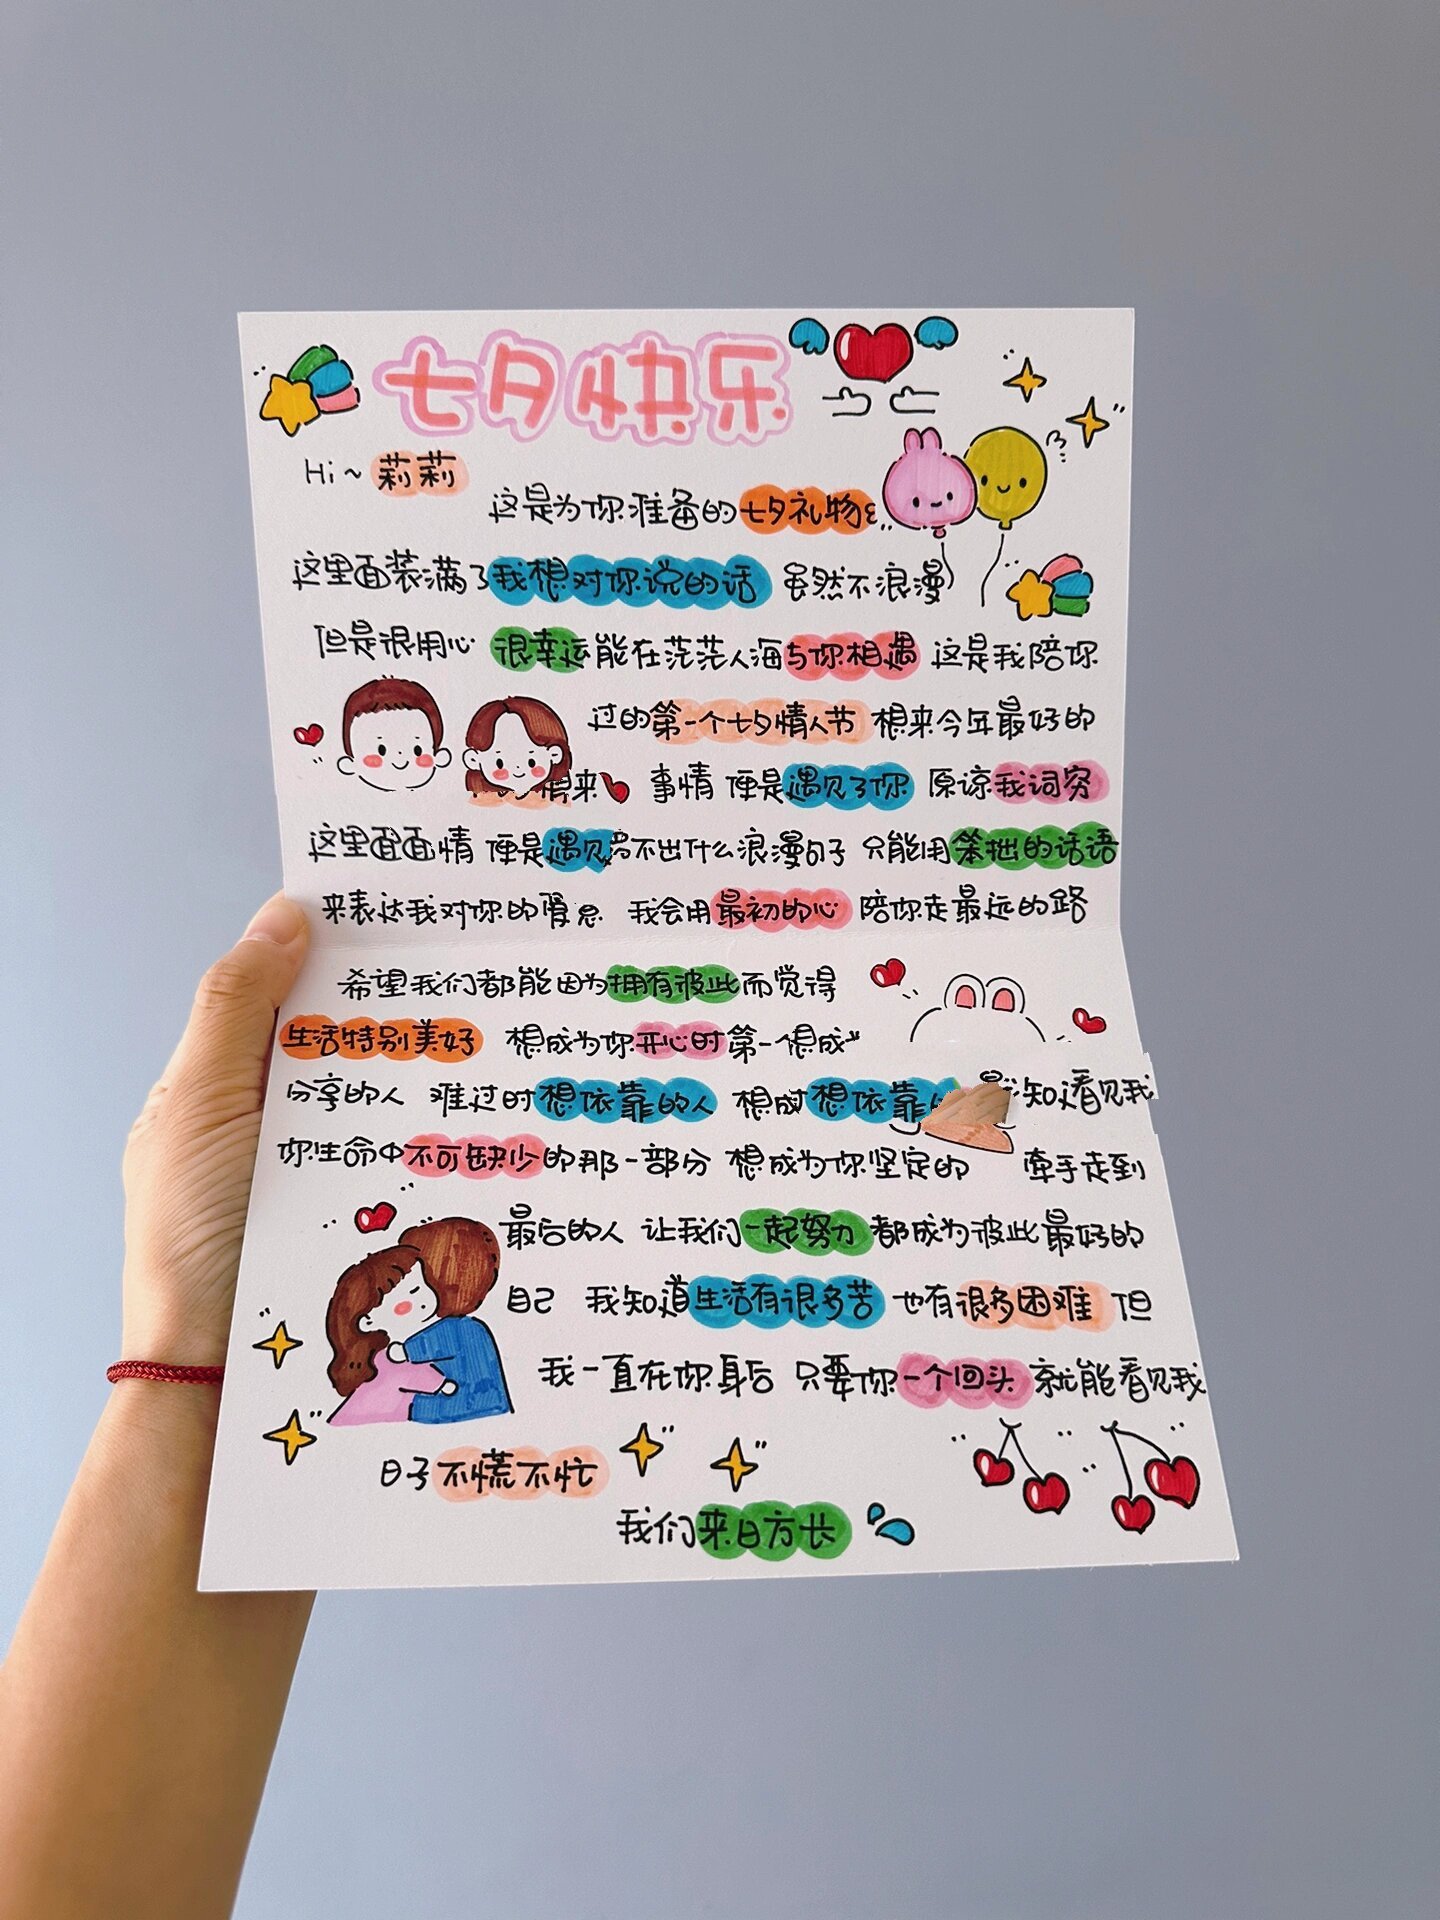 七夕快乐
Hi~莉莉
这是为你准备的七夕礼物
这里面装满了我想对你说的话 虽然不浪漫
但是很用心 很幸运能在茫茫人海与你相遇 这是我陪你
过的第一个七夕情人节 想来今年最好的
来 事情 便是遇见了你 原谅我词穷
这里面面情 便是遇见 不出什么浪漫句子 只能用笨拙的话语
来表达我对你的 我会用最初的心 陪你走最远的路
希望我们都能因为拥有彼此而觉得
生活特别美好 想成为你开心时第一
分享的人 难过时想依靠的人 想成 想依靠 知 看见我
你生命中不可缺少的那一部分 想成为你坚定的 牵手走到
最后的人 让我们一起努力 都成为彼此最好的
自己 我知道生活有很多苦 也有很多困难 但
我一直在你身后 只要你一个回头 就能看见我
日子不慌不忙
我们来日方长